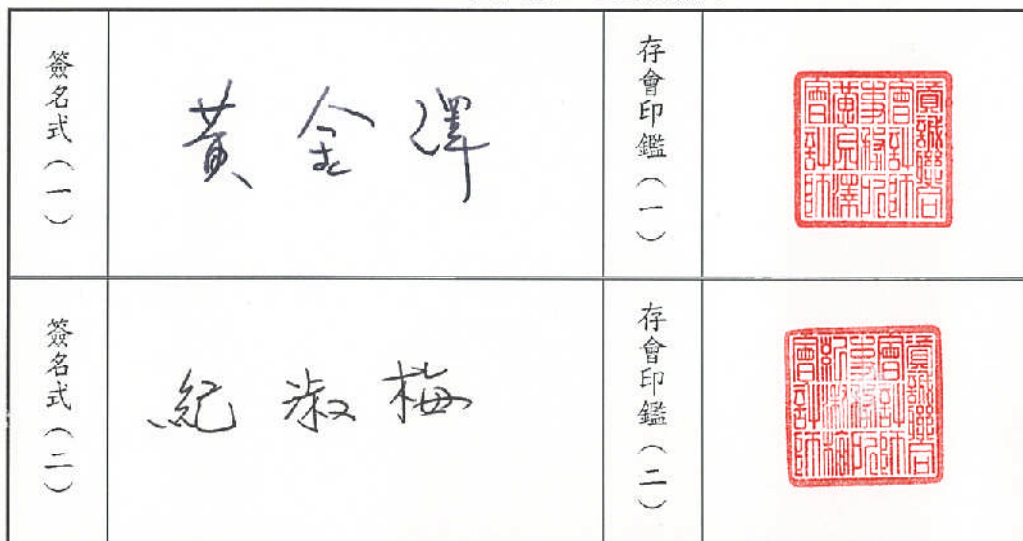 簽名式（一）
黃金澤
存會印鑑（一）
資誠聯合
會計師
事務所
黃金澤
會計師
簽名式（二）
紀淑梅
存會印鑑（二）
資誠聯合
會計師
事務所
紀淑梅
會計師